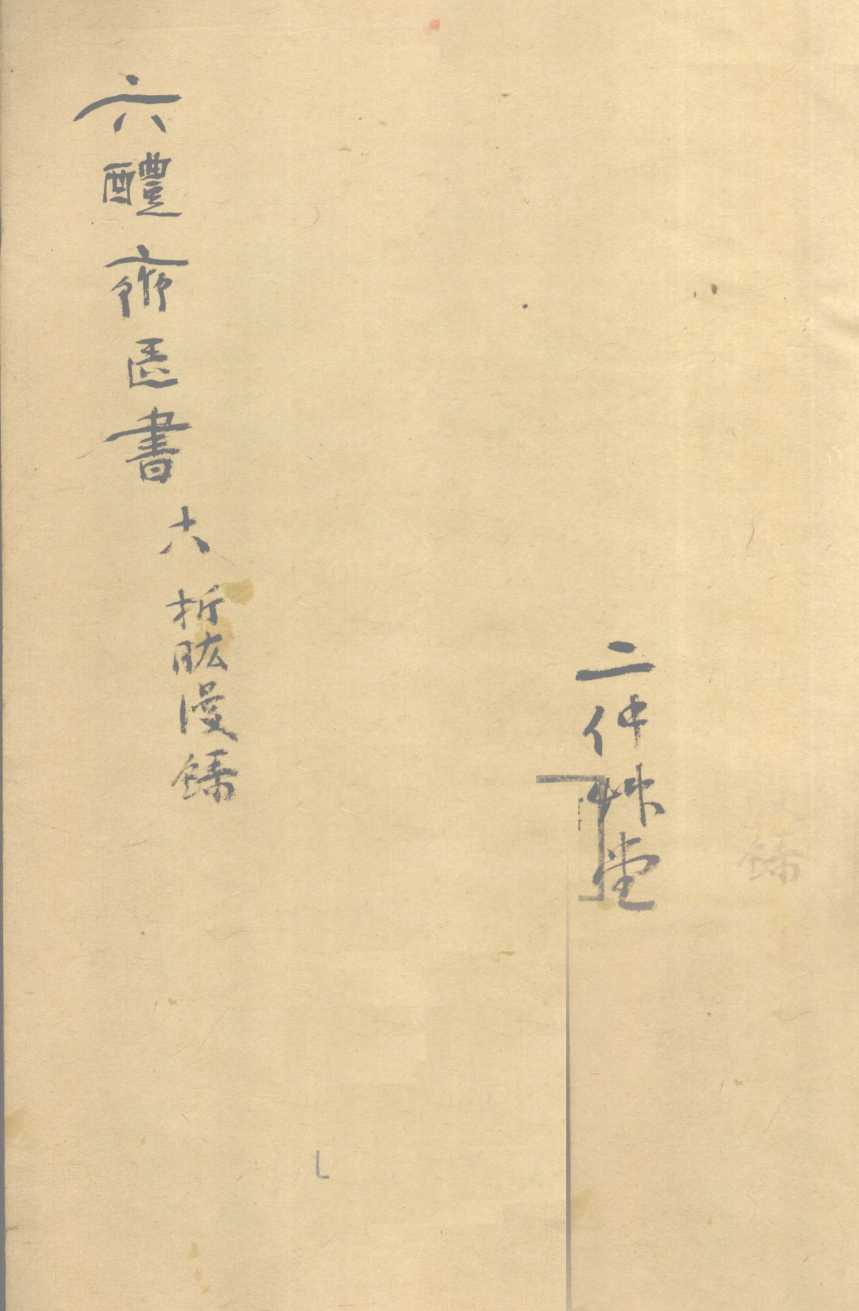 二仲艸堂
六醴齋医書 六 折肱漫録